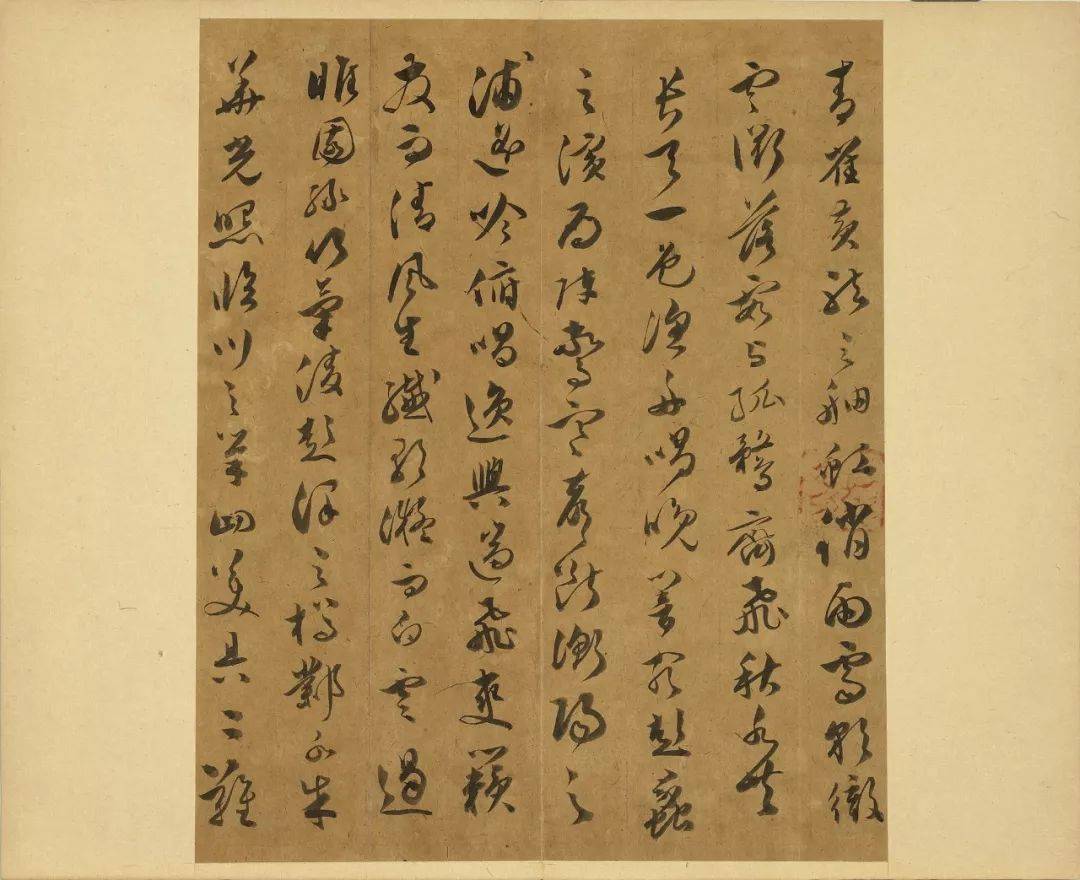 青雀黄龍之舳虹銷雨霽彩徹
雲衢落霞與孤鶩齊飛秋水共
長天一色漁舟唱晚響窮彭蠡
之濱鴈陣驚寒聲斷衡陽之
浦遥吟俯唱逸興遄飛爽籟
發而清風生纖歌凝而白雲遏
睢園綠竹氣凌彭澤之樽鄴水朱
華光照臨川之筆四美具二難